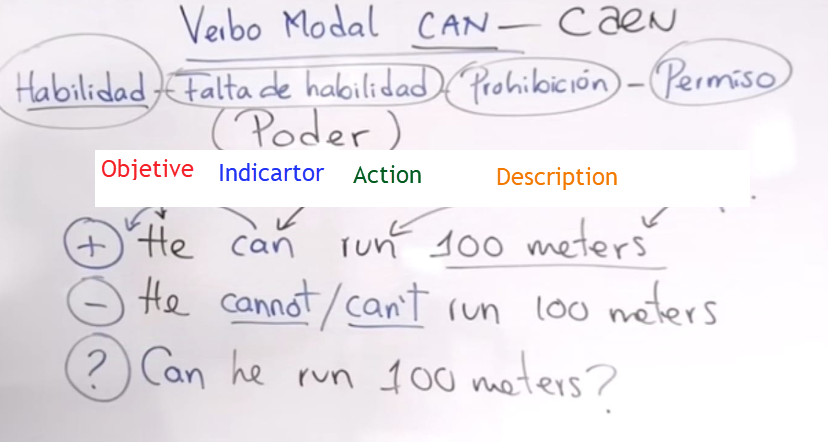 Verbo Modal CAN – CaeN
Habilidad – Falta de habilidad – Prohibición – Permiso
(Poder)
Objetive Indicartor Action Description
+ He can run 100 meters
– He cannot/can't run 100 meters
? Can he run 100 meters?